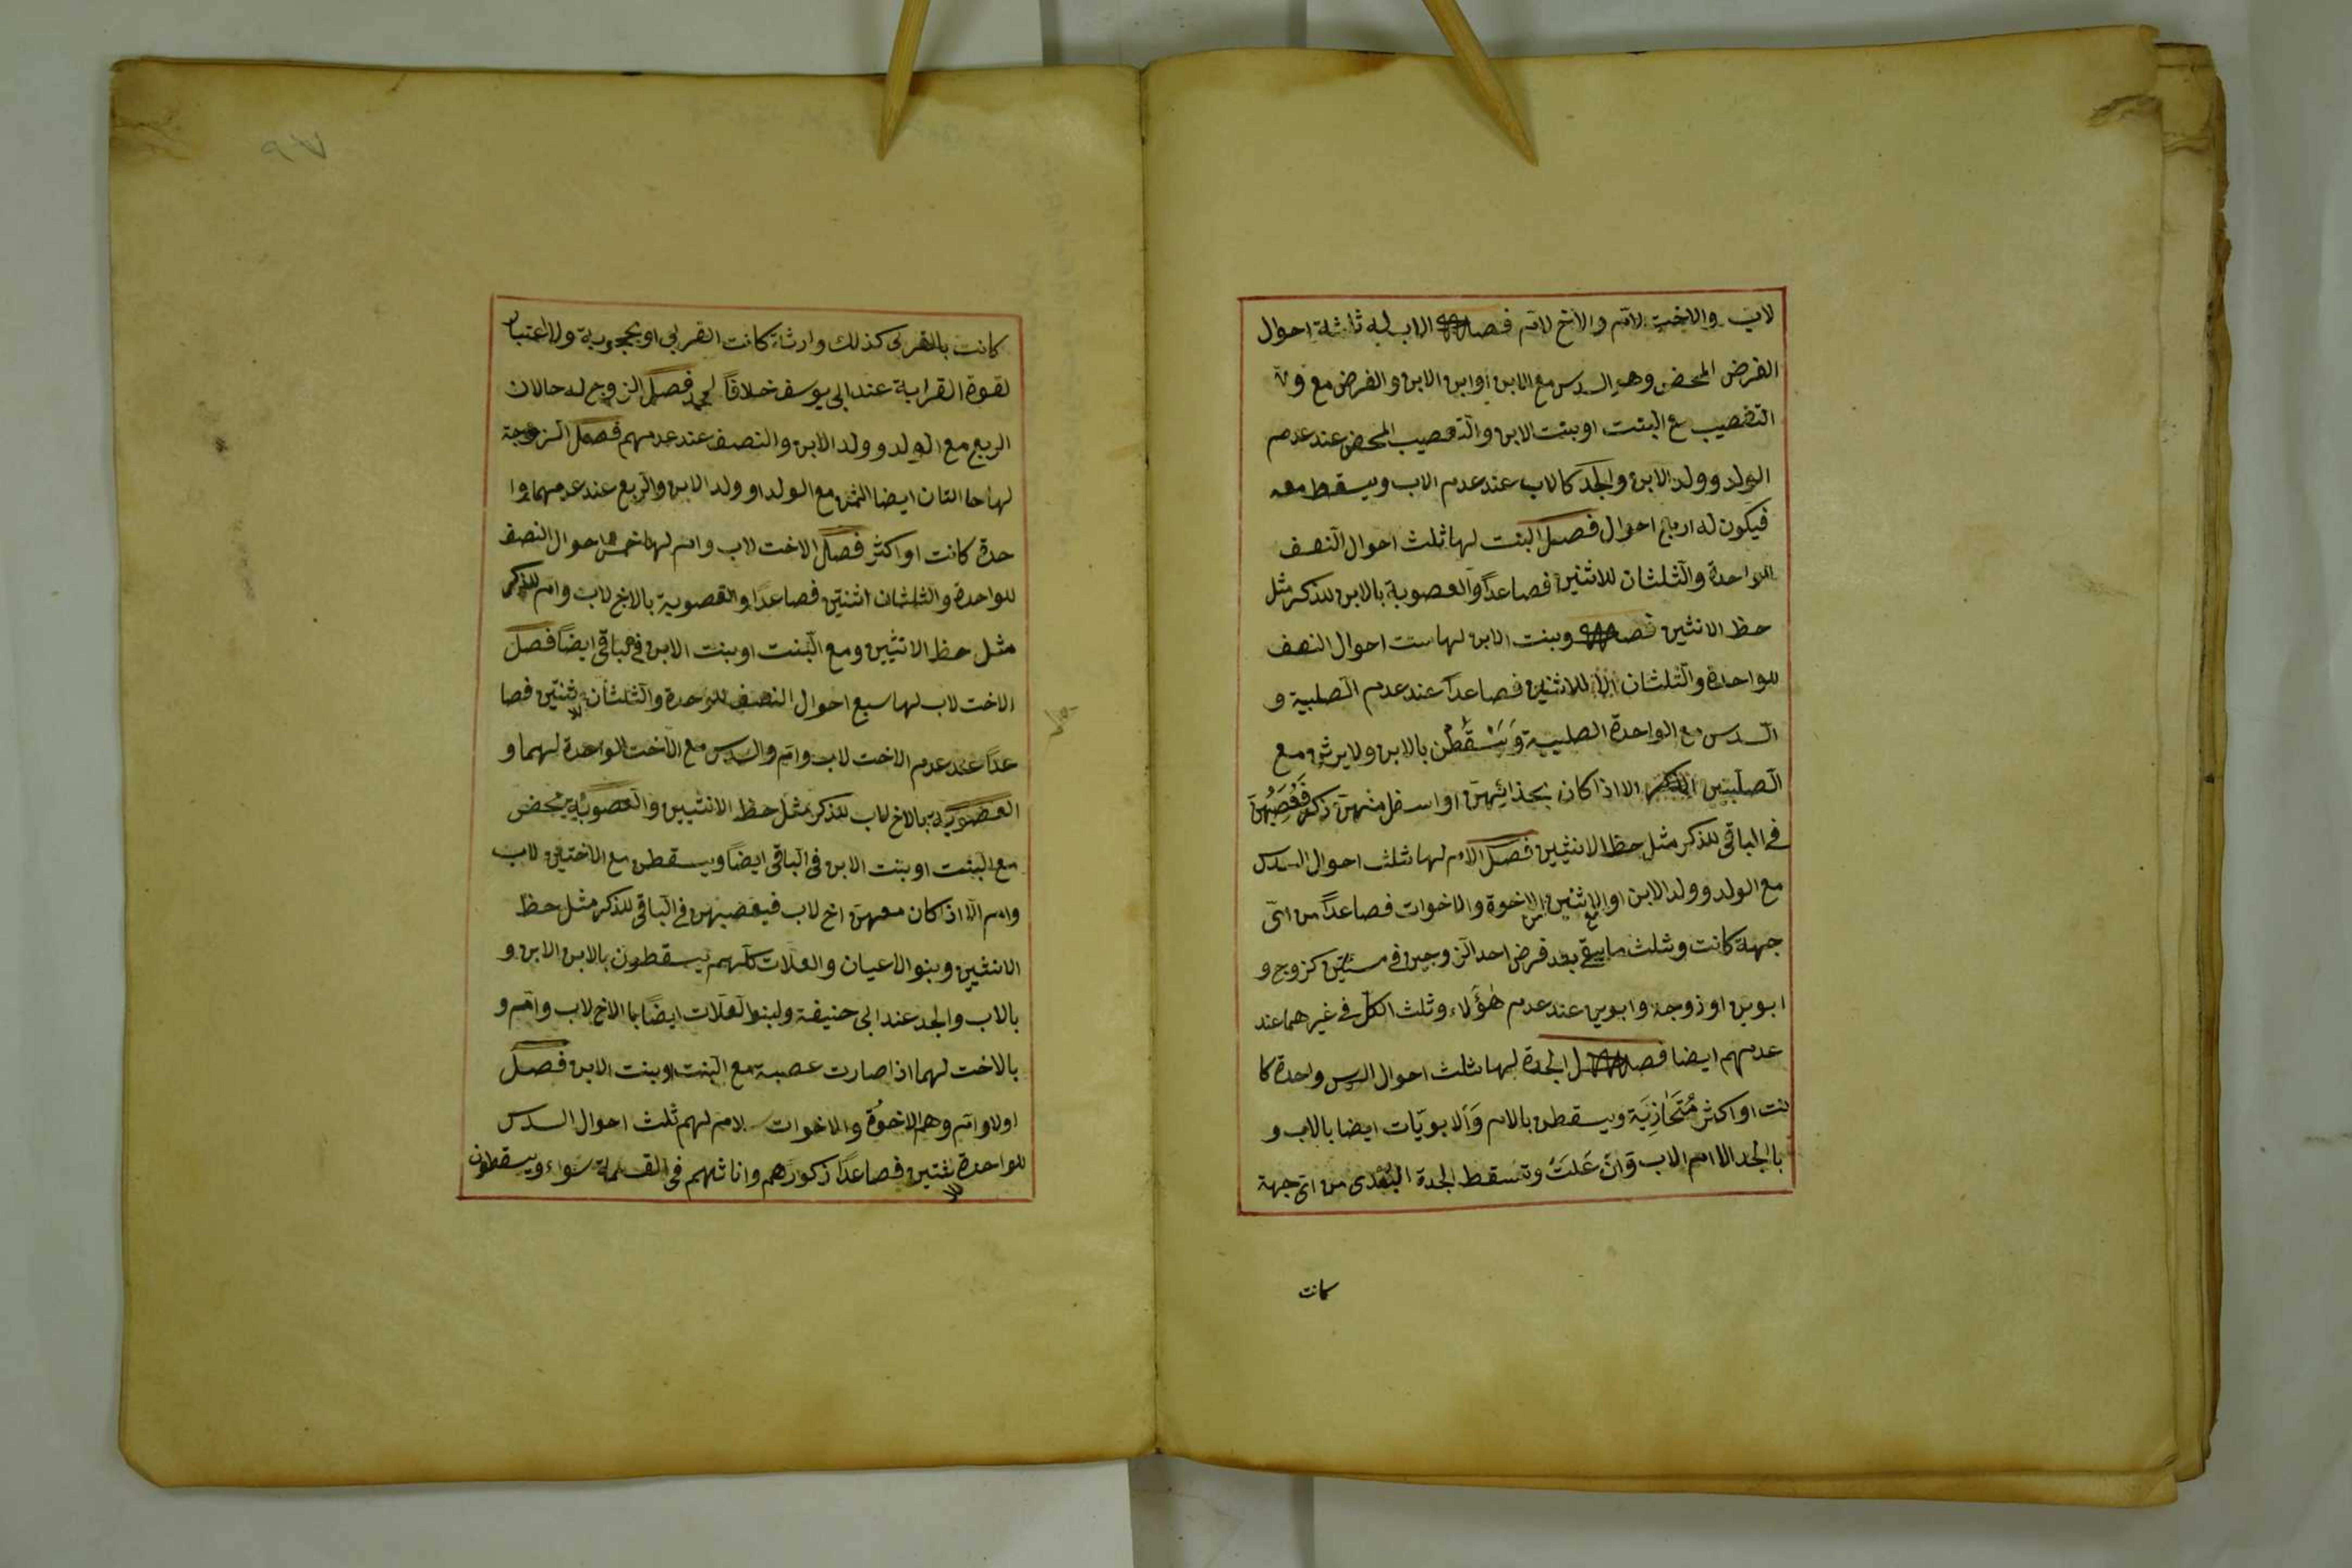 لاب والاخت لام والاخ لام فصل الاب له ثلثة احوال
الفرض المحض وهو السدس مع الابن او ابن الابن والفرض مع
التعصيب مع البنت او بنت الابن والتعصيب المحض عند عدم
الولد وولد الابن والجد كالاب عند عدم الاب ويسقط معه
فيكون له اربع احوال فصل البنت لها ثلث احوال النصف
للواحدة والثلثان للاثنين فصاعداً والعصوبة بالابن للذكر مثل
حظ الانثيين فصل وبنت الابن لها ست احوال النصف
للواحدة والثلثان للاثنين فصاعداً عند عدم الصلبية و
السدس مع الواحدة الصلبية وَيَسْقُطْنَ بالابن ولا يرثن مع
الصلبيتين الا اذا كان بحذائهن او اسفل منهن ذكر فَيُعَصِّبُهُنَّ
في الباقي للذكر مثل حظ الانثيين فصل الام لها ثلث احوال السدس
مع الولد وولد الابن او الاثنين من الاخوة والاخوات فصاعداً من اى
جهة كانت وثلث ما يبقى بعد فرض احد الزوجين في مسئلتين كزوج و
ابوين او زوجة وابوين عند عدم هؤلاء وثلث الكل في غيرهما عند
عدمهم ايضا فصل الجدة لها ثلث احوال السدس واحدة كا
نت او اكثر مُتَحَاذِيَة ويسقطن بالام وَالابويّات ايضا بالاب و
بالجد الا ام الاب وَان عَلَتْ وتسقط الجدة البُعْدى من اى جهة
كانت
٩٧
كانت بالقربى كذلك وارثة كانت القربى او محجوبة ولا اعتبار
لقوة القرابة عند ابي يوسف خلافاً لمحمد فصل الزوج له حالان
الربع مع الولد وولد الابن والنصف عند عدمهم فصل الزوجة
لها حالتان ايضا الثمن مع الولد او ولد الابن والربع عند عدمهما وا
حدة كانت او اكثر فصل الاخت لاب وام لها خمس احوال النصف
للواحدة والثلثان اثنتين فصاعداً والعصوبة بالاخ لاب وام للذكر
مثل حظ الانثيين ومع البنت او بنت الابن في الباقي ايضاً فصل
الاخت لاب لها سبع احوال النصف للوحدة والثلثان لاثنتين فصا
عداً عند عدم الاخت لاب وام والسدس مع الاخت الواحدة لهما و
العصوبة بالاخ لاب للذكر مثل حظ الانثيين والعصوبة
مع البنت او بنت الابن في الباقي ايضاً ويسقطن مع الاختين لاب
وام الا اذا كان معهن اخ لاب فيعصبهن في الباقي للذكر مثل حظ
الانثيين وبنو الاعيان والعلات كلهم يسقطون بالابن الابن و
بالاب والجد عند ابي حنيفة ولبنو العلات ايضاً بالاخ لاب وام و
بالاخت لهما اذا صارت عصبة مع البنت او بنت الابن فصل
اولاو ام وهم الاخوُة والاخوات لام لهم ثلث احوال السدس
للواحدة لاثنتين فصاعداً ذكورهم واناثهم في القسمة سواء ويسقطون